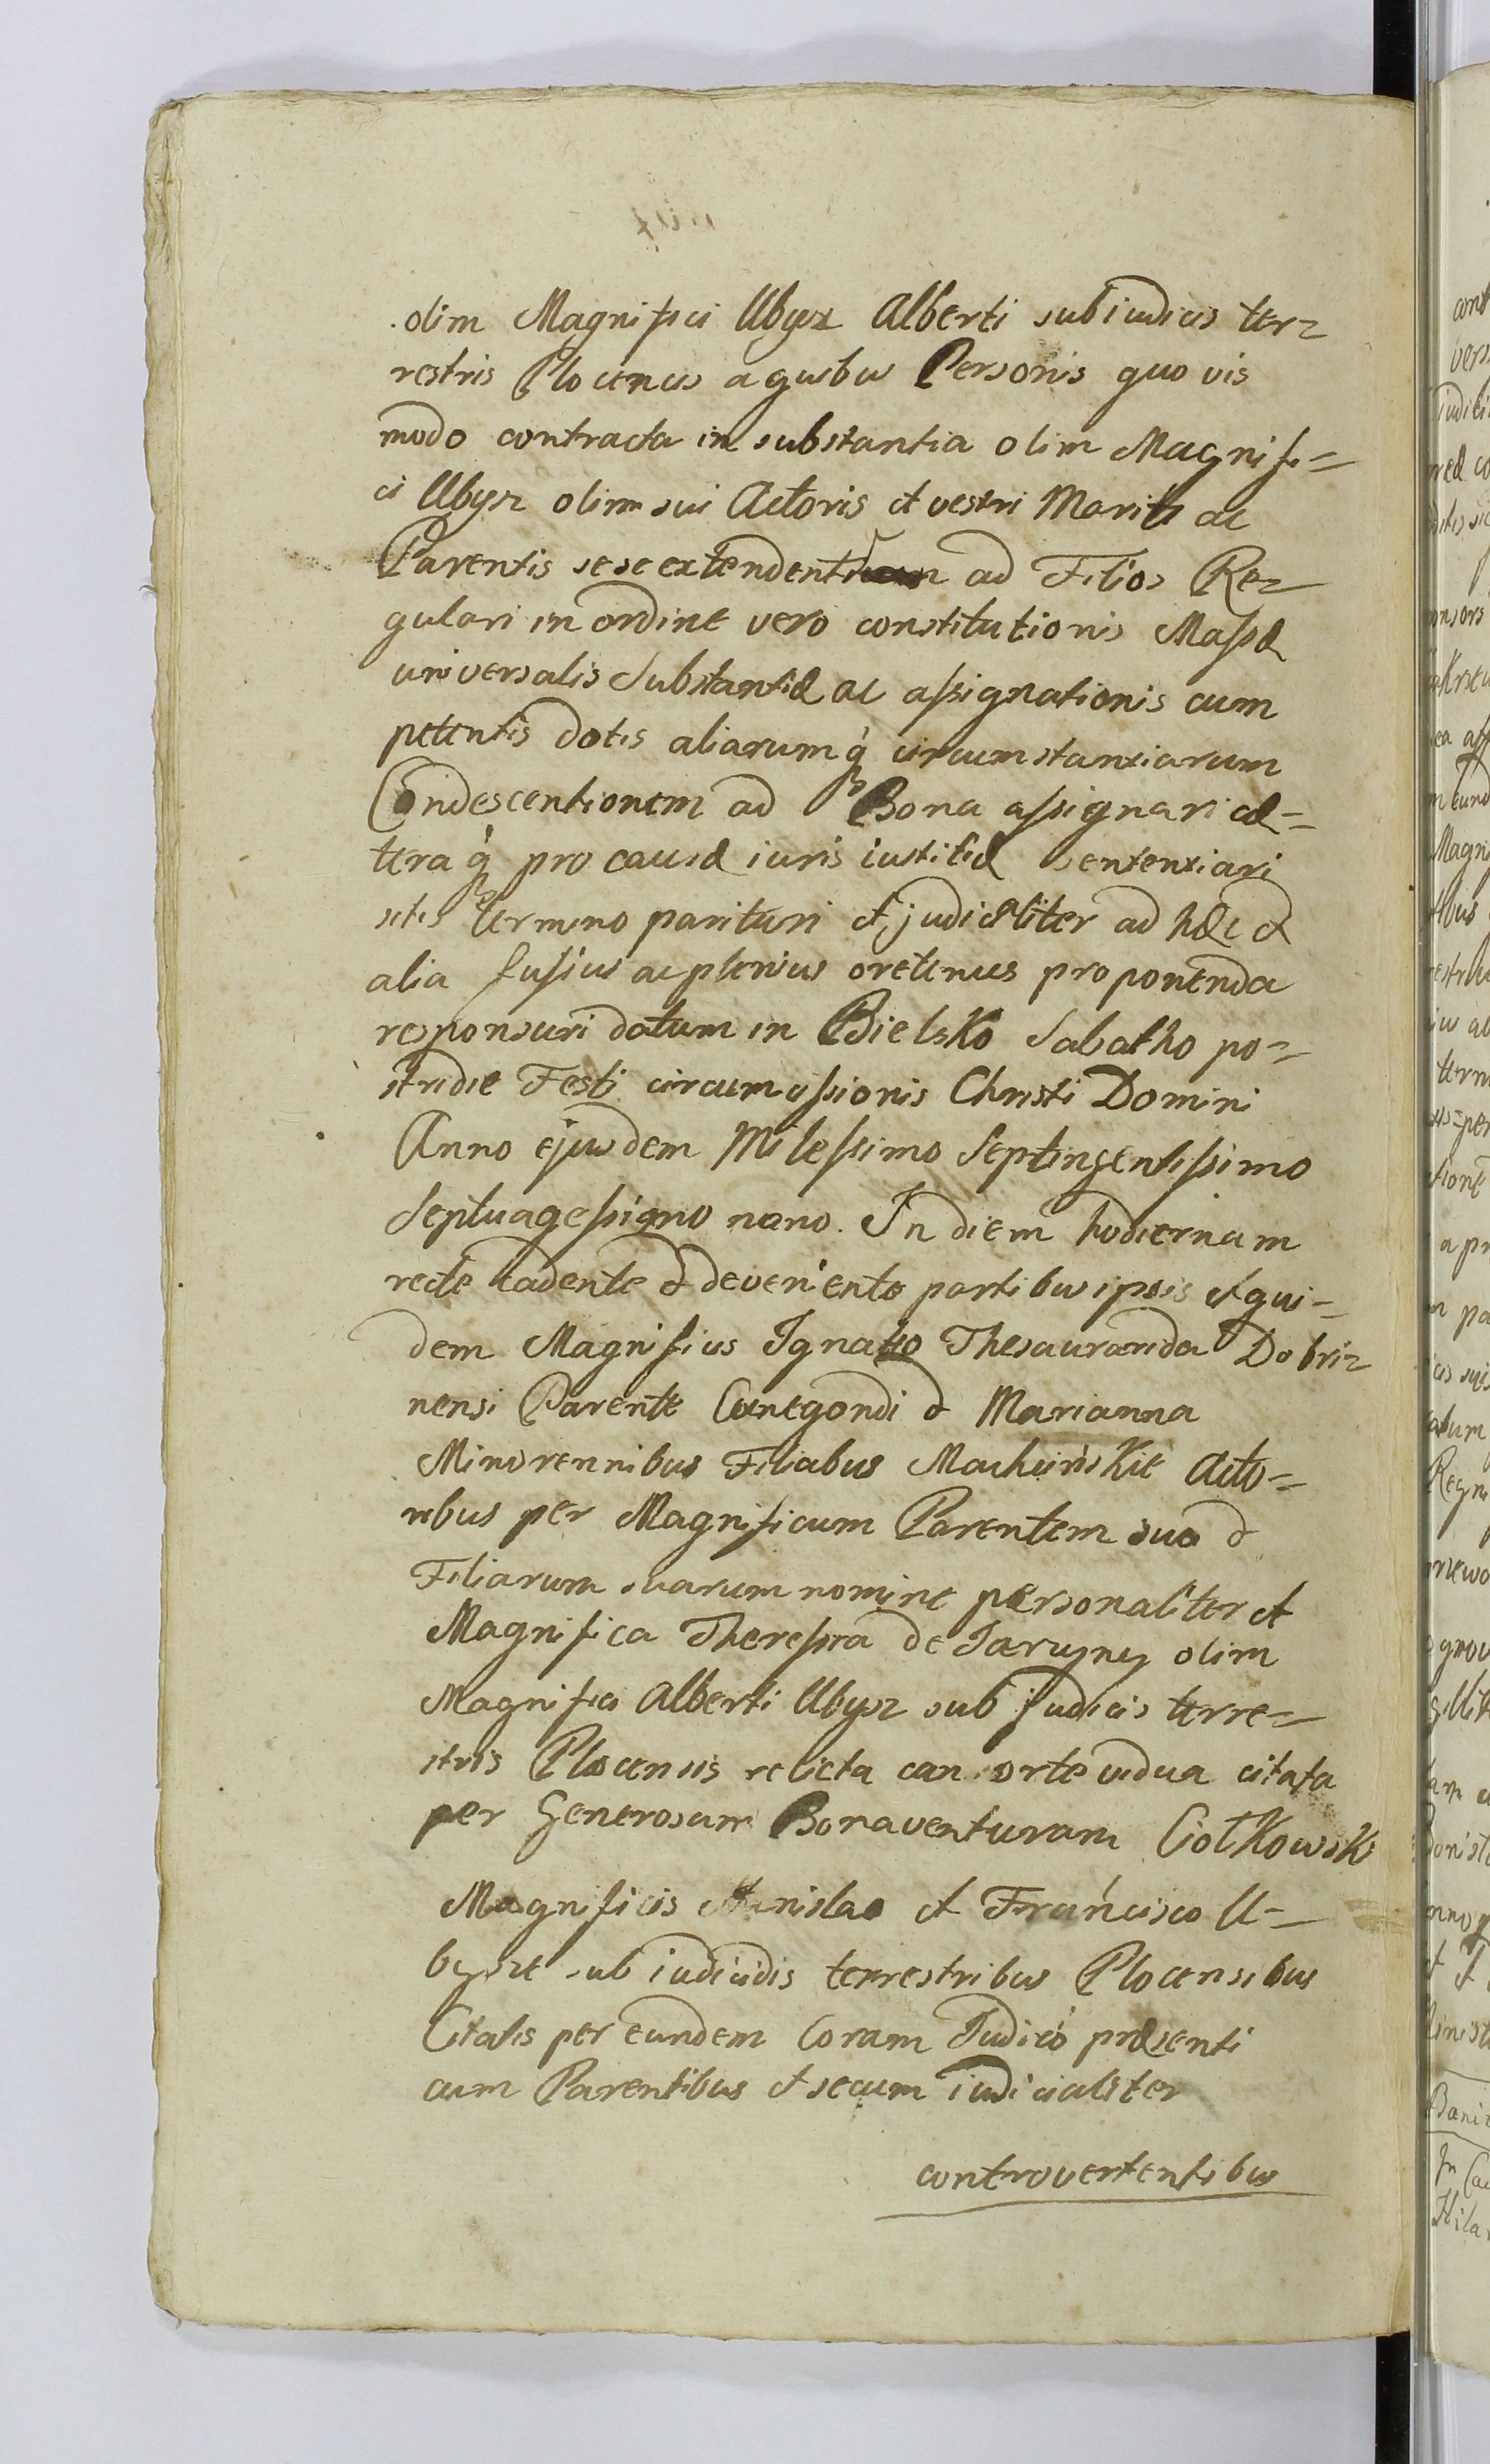 olim Magnifici Ubysz Alberti subiudicis ter=
restris Plocencis a quibus Personis quo vis
modo contracta in substantia olim Magnifi=
ci Ubysz olim sui Actoris et vestri Mariti ac
Parentis sese extendent ad Filios Re=
gulari in ordine vero constitutionis Massæ
universalis Substantiæ ac assignationis cum
petentis dotis aliarumq circumstantiarum
Condescentionem ad Bona assignari cæ=
teraq pro causæ iuris iustitiæ sententiari
sitis termino parituri et judicialiter ad hæc et
alia fusius ac plenius oretenus proponenda
responsuri datum in Bielsko Sabatho po=
stridie Festi circumcissionis Christi Domini
Anno ejusdem Milessimo Septingentissimo
Septuagessigno nono. In diem hodiernam
recte cadente et deveniente partibus ipsis et qui=
dem Magnificus Ignatio Thesaurarida Dobri=
nensi Parente Cunegondi et Marianna
Minorennibus Filiabus Machcińskie Acto=
ribus per Magnificum Parentem suo et
Filiarum suarum nomine personaliter et
Magnifica Theressia de Jaruyny olim
Magnifici Alberti Ubysz sub judicis terre=
stris Plocensis relicta consorte vidua citata
per Generosum Bonaventuram Ciołkowski
Magnificis Stanislao et Francisco U=
bysze subiudicidis terrestribus Plocensibus
Citatis per eundem Coram Judicio præsenti
cum Parentibus et secum iudicialiter
controvertentibus